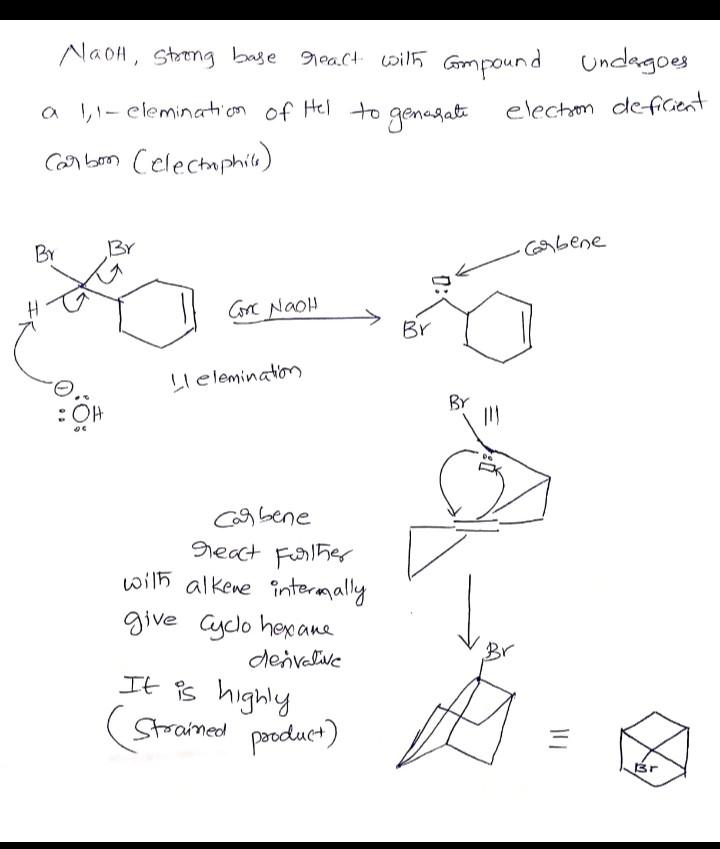 NaOH, strong base react with Compound undergoes
a 1,1-elemination of Hcl to genarate electron deficient
Carbon (electrophile)
Br Br
H
Conc NaOH
⊖
:ÖH
1,1 elemination
carbene
Br
Br
carbene
react Further
with alkene internally
give cyclo hexane
derivative
It is highly
(Strained product)
Br
≡
Br